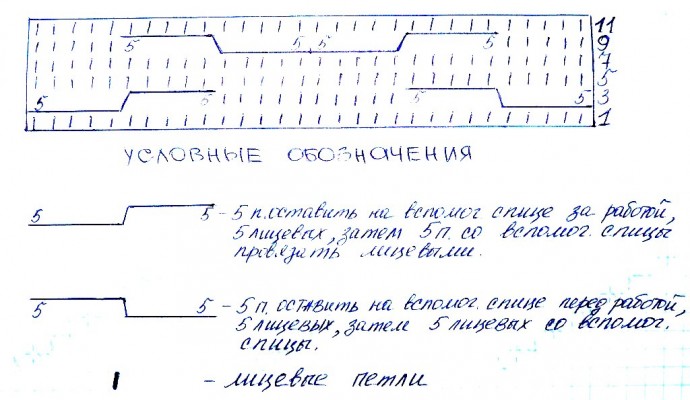 11
5 5,5 5 9
7
5
5 5 3
1
УСЛОВНЫЕ ОБОЗНАЧЕНИЯ
5 5 - 5 п. оставить на вспомог. спице за работой,
5 лицевых, затем 5 п. со вспомог. спицы
провязать лицевыми.
5 5 - 5 п. оставить на вспомог. спице перед работой,
5 лицевых, затем 5 лицевых со вспомог.
спицы.
- лицевые петли